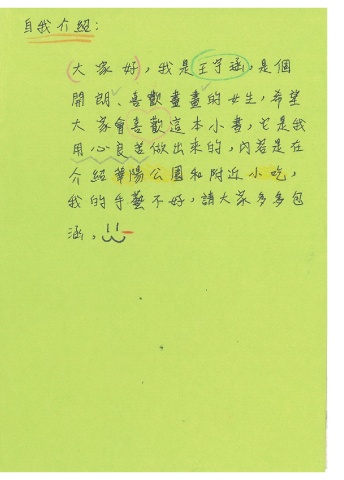 自我介紹:
大家好,我是王宇涵,是個
開朗、喜歡畫畫的女生,希望
大家會喜歡這本小書,它是我
用心良苦做出來的,內容是在
介紹華陽公園和附近小吃,
我的手藝不好,請大家多多包
涵。